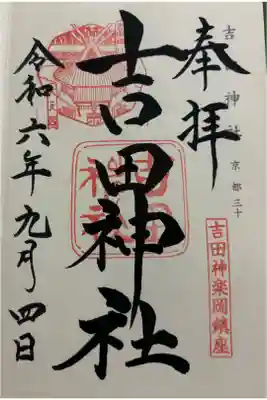 吉 神 社 京都三十
吉田神楽岡鎮座
奉拝
吉田神社
吉田
神社
令和六年九月四日